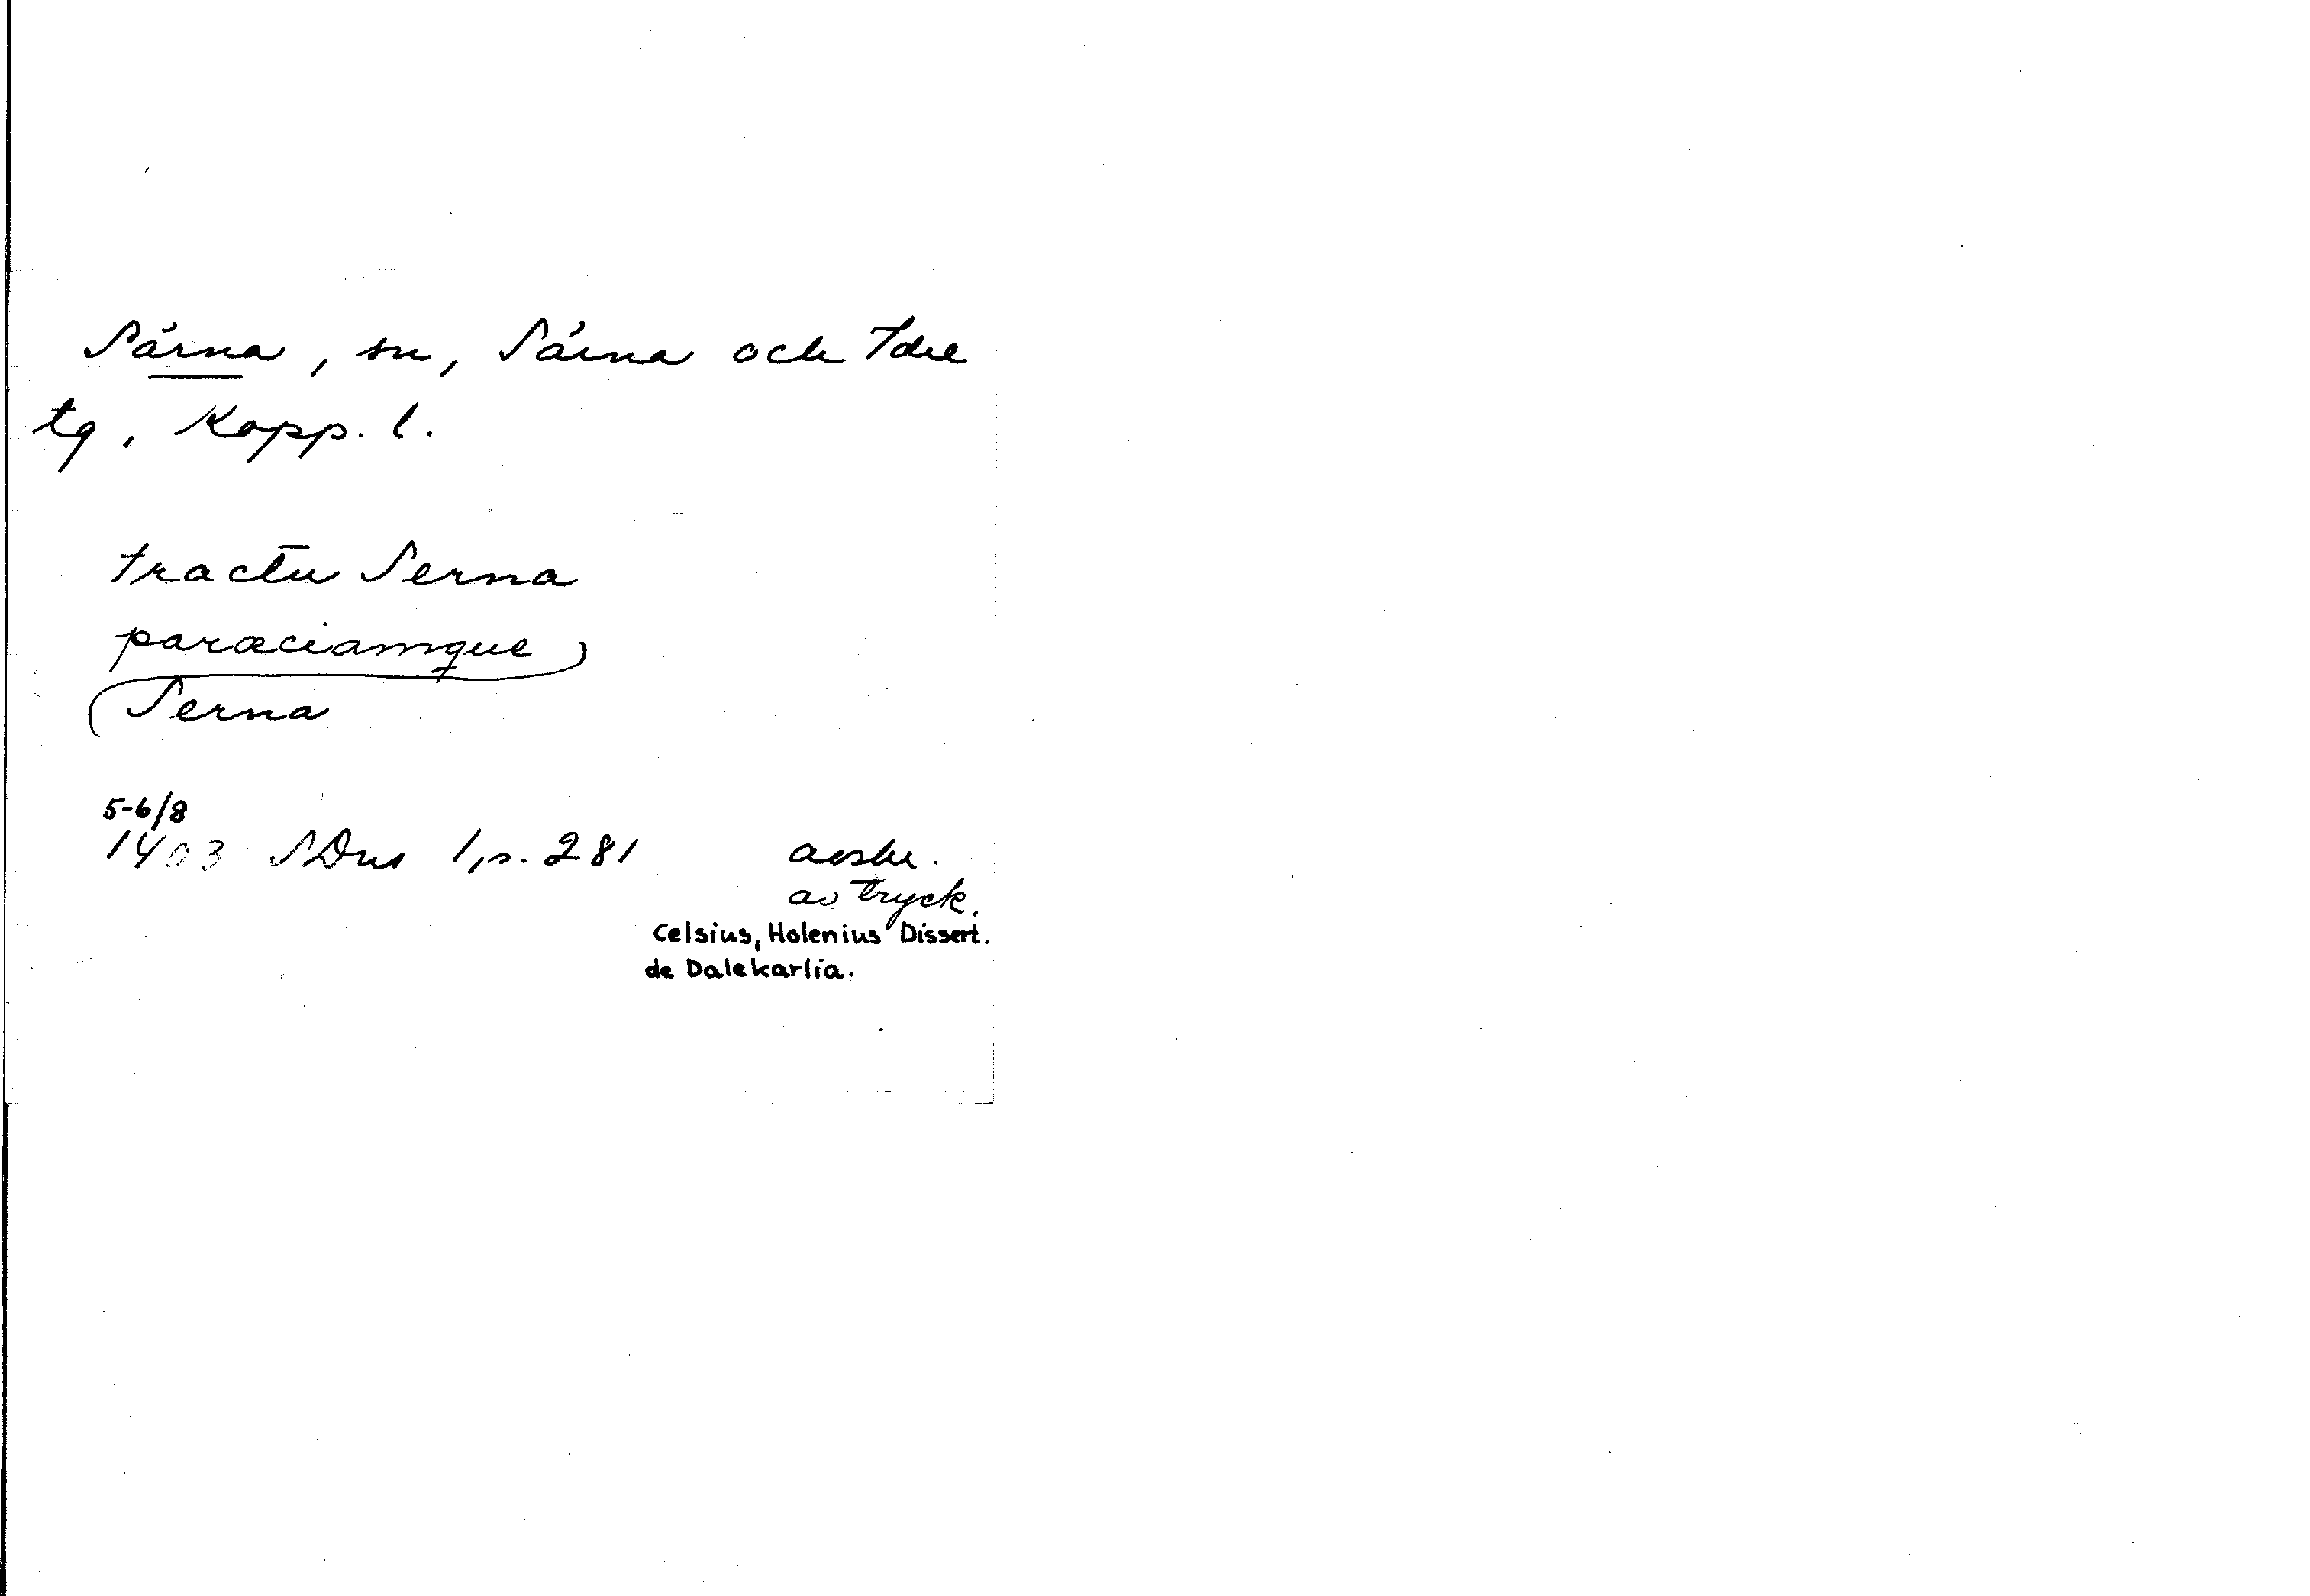 Särna, sn, Särna och Idre
tg, Kopp. l.
tractū Serna
paræciamque
Serna
5-6/8
1403 SDns 1, s. 281 avskr.
av tryck.
Celsius, Holenius Dissert.
de Dalekarlia.